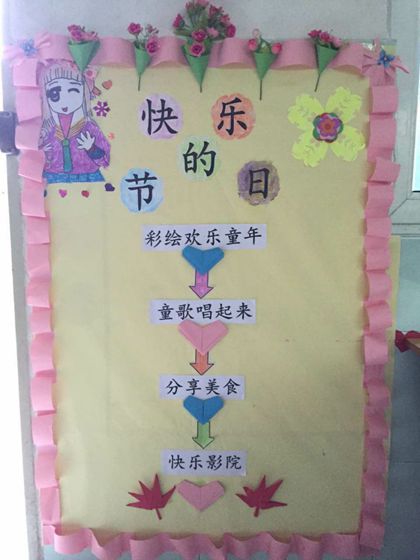 快乐
的
节日
彩绘欢乐童年
童歌唱起来
分享美食
快乐影院